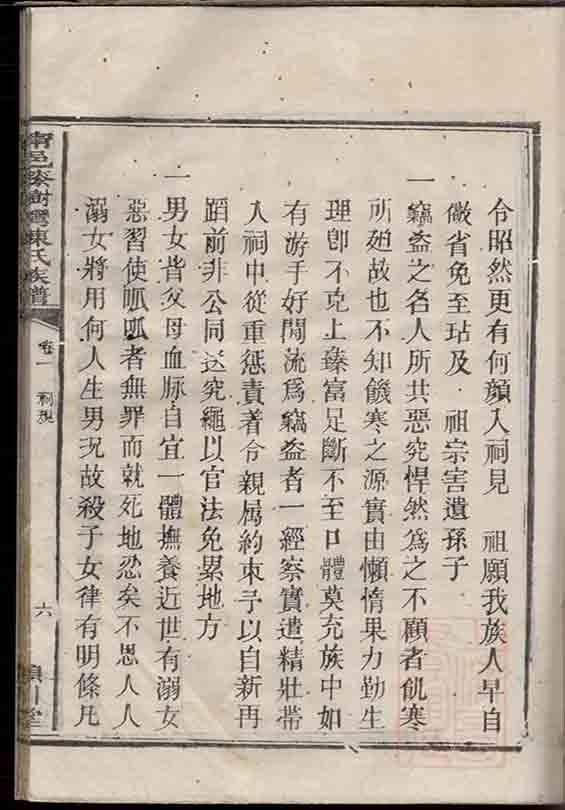 令昭然更有何顏入祠見 祖願我族人早自
儆省免至玷及 祖宗害遺孫子
一竊盜之名人所共惡究悍然為之不顧者飢寒
所廹故也不知饑寒之源實由懶惰果力勤生
理卽不克上臻富足斷不至口體莫充族中如
有游手好閒流為竊盜者一經察實遣精壯帶
入祠中從重懲責着令親属約束予以自新再
蹈前非公同送究繩以官法免累地方
一男女皆父母血脉自宜一體撫養近世有溺女
惡習使呱呱者無罪而就死地忍矣不思人人
溺女將用何人生男况故殺子女律有明條凡
甯邑
樹灣陳氏族譜
卷一 祠規
六
川堂